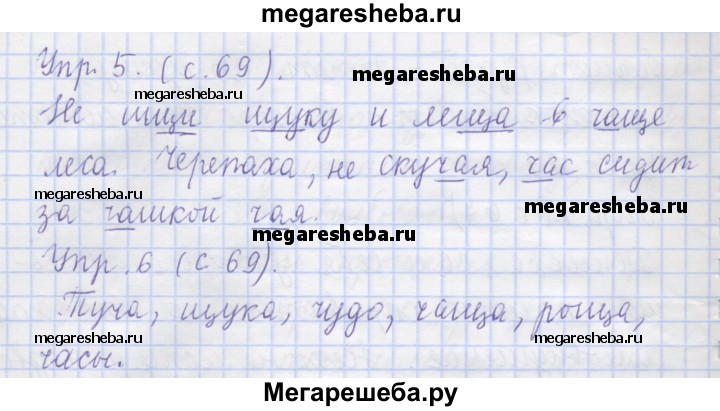 megaresheba.ru
Упр. 5. (с. 69).
megaresheba.ru
megaresheba.ru
Не ищи щуку и леща в чаще
леса. Черепаха, не скучая, час сидит
megaresheba.ru
megaresheba.ru
за чашкой чая.
megaresheba.ru
Упр. 6 (с 69).
Туча, щука, чудо, чаща, роща,
megaresheba.ru
megaresheba.ru
часы.
Мегарешеба.ру